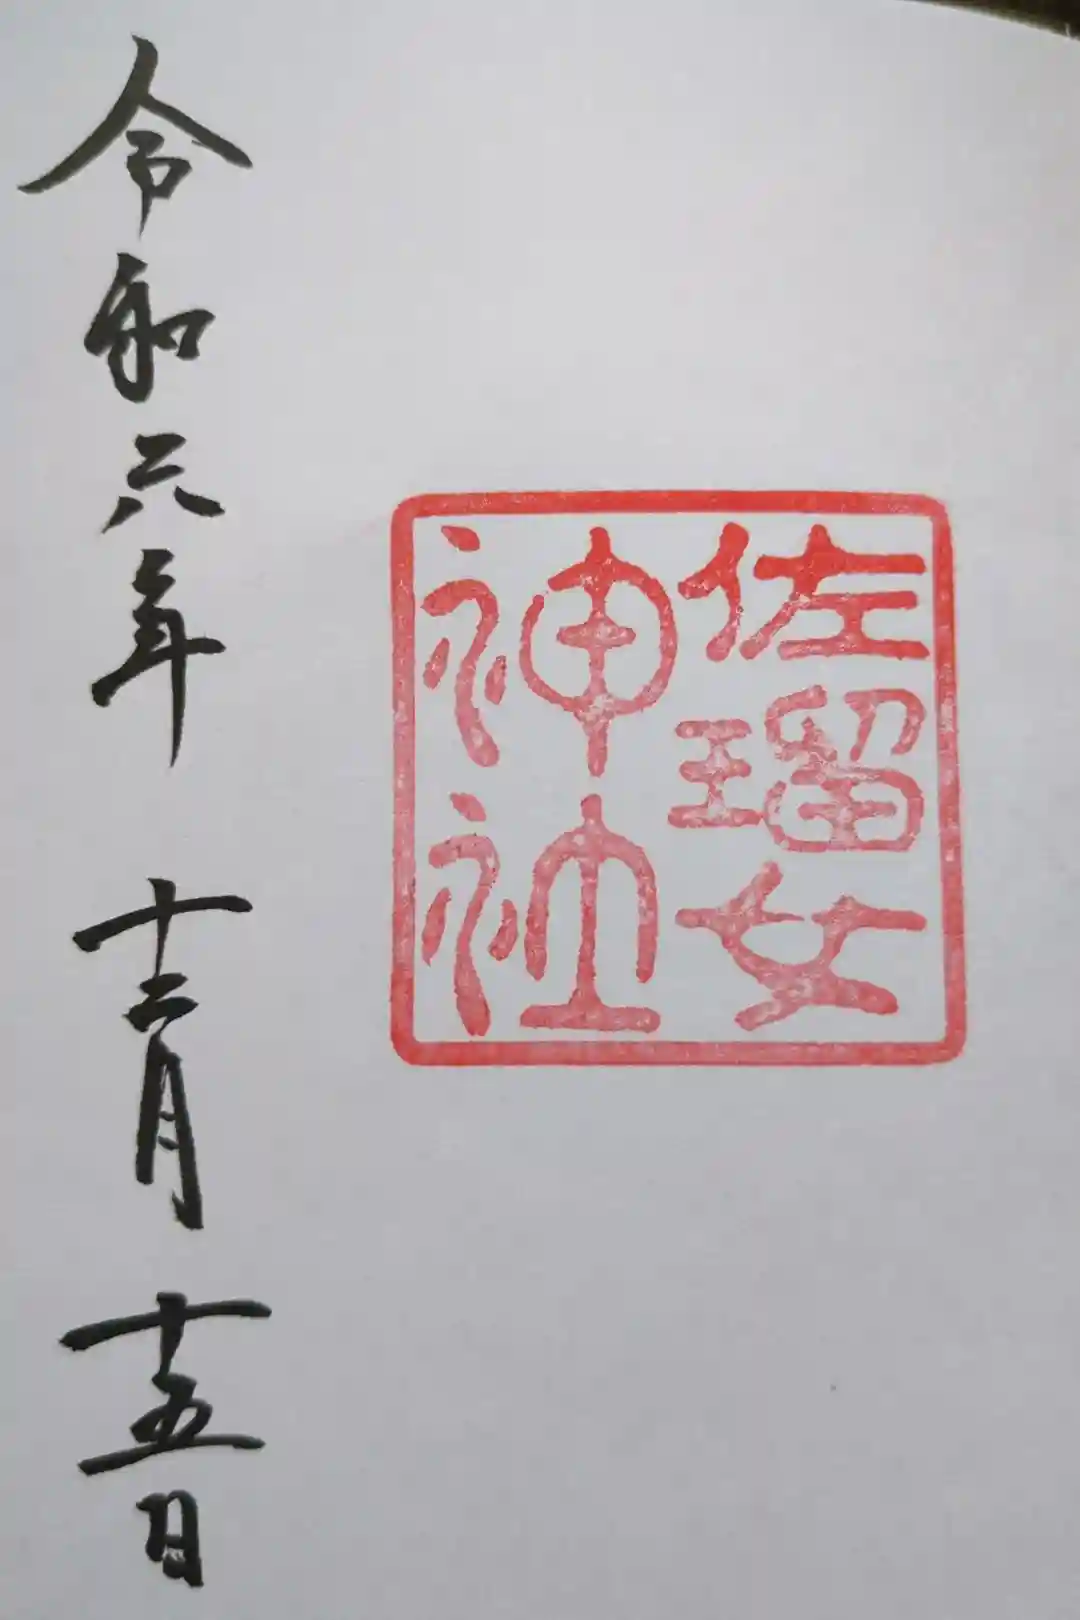 佐瑠女
神社
令和六年 十二月 十五日